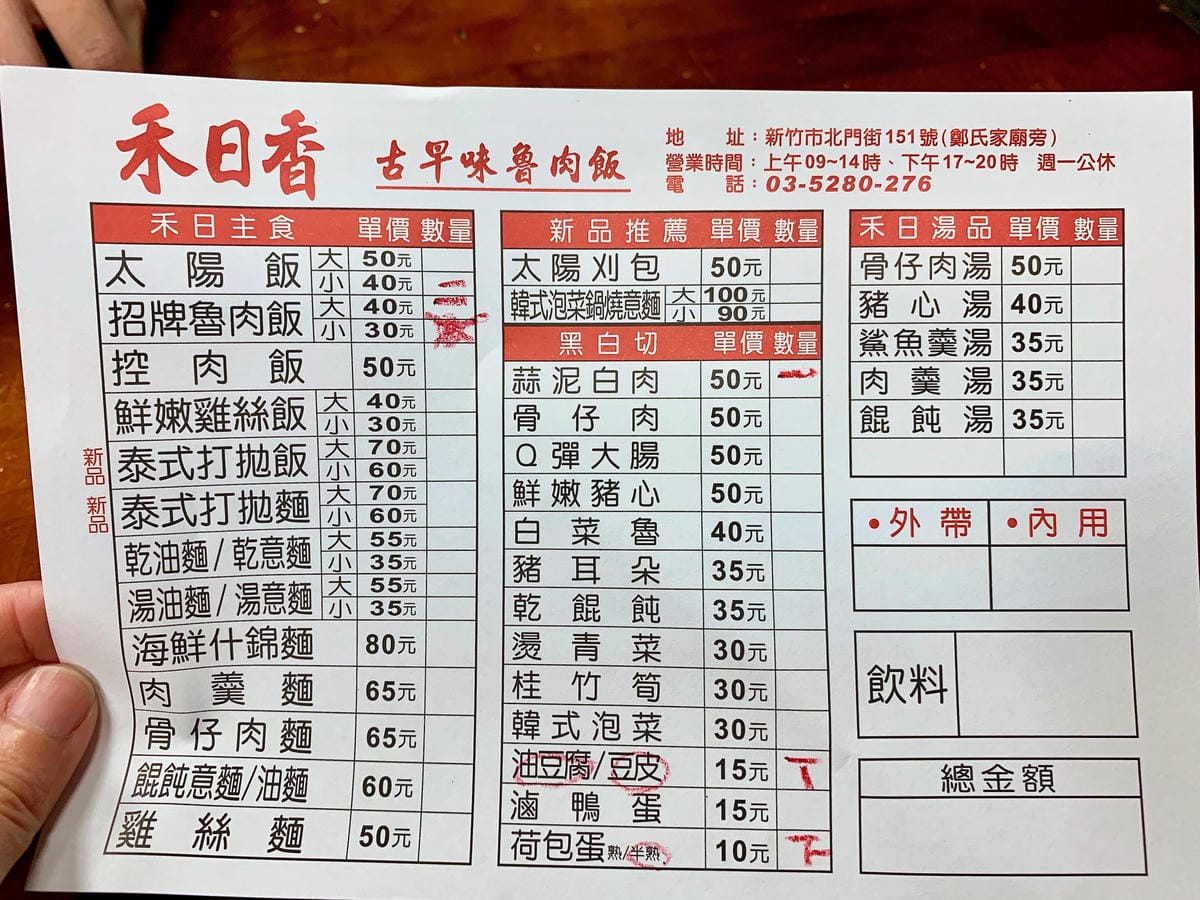 禾日香 古早味魯肉飯
地 址：新竹市北門街151號(鄭氏家廟旁)
營業時間：上午09~14時、下午17~20時 週一公休
電 話：03-5280-276
禾日主食 單價 數量
太陽飯 大 50元
小 40元 一
招牌魯肉飯 大 40元
小 30元
控肉飯 50元
鮮嫩雞絲飯 大 40元
小 30元
新品 泰式打拋飯 大 70元
小 60元
新品 泰式打拋麵 大 70元
小 60元
乾油麵/乾意麵 大 55元
小 35元
湯油麵/湯意麵 大 55元
小 35元
海鮮什錦麵 80元
肉羹麵 65元
骨仔肉麵 65元
餛飩意麵/油麵 60元
雞絲麵 50元
新品推薦 單價 數量
太陽刈包 50元
韓式泡菜鍋燒意麵 大 100元
小 90元
黑白切 單價 數量
蒜泥白肉 50元 一
骨仔肉 50元
Q彈大腸 50元
鮮嫩豬心 50元
白菜魯 40元
豬耳朵 35元
乾餛飩 35元
燙青菜 30元
桂竹筍 30元
韓式泡菜 30元
油豆腐/豆皮 15元 丅
滷鴨蛋 15元
荷包蛋熟/半熟 10元
禾日湯品 單價 數量
骨仔肉湯 50元
豬心湯 40元
鯊魚羹湯 35元
肉羹湯 35元
餛飩湯 35元
•外帶 •內用
飲料
總金額